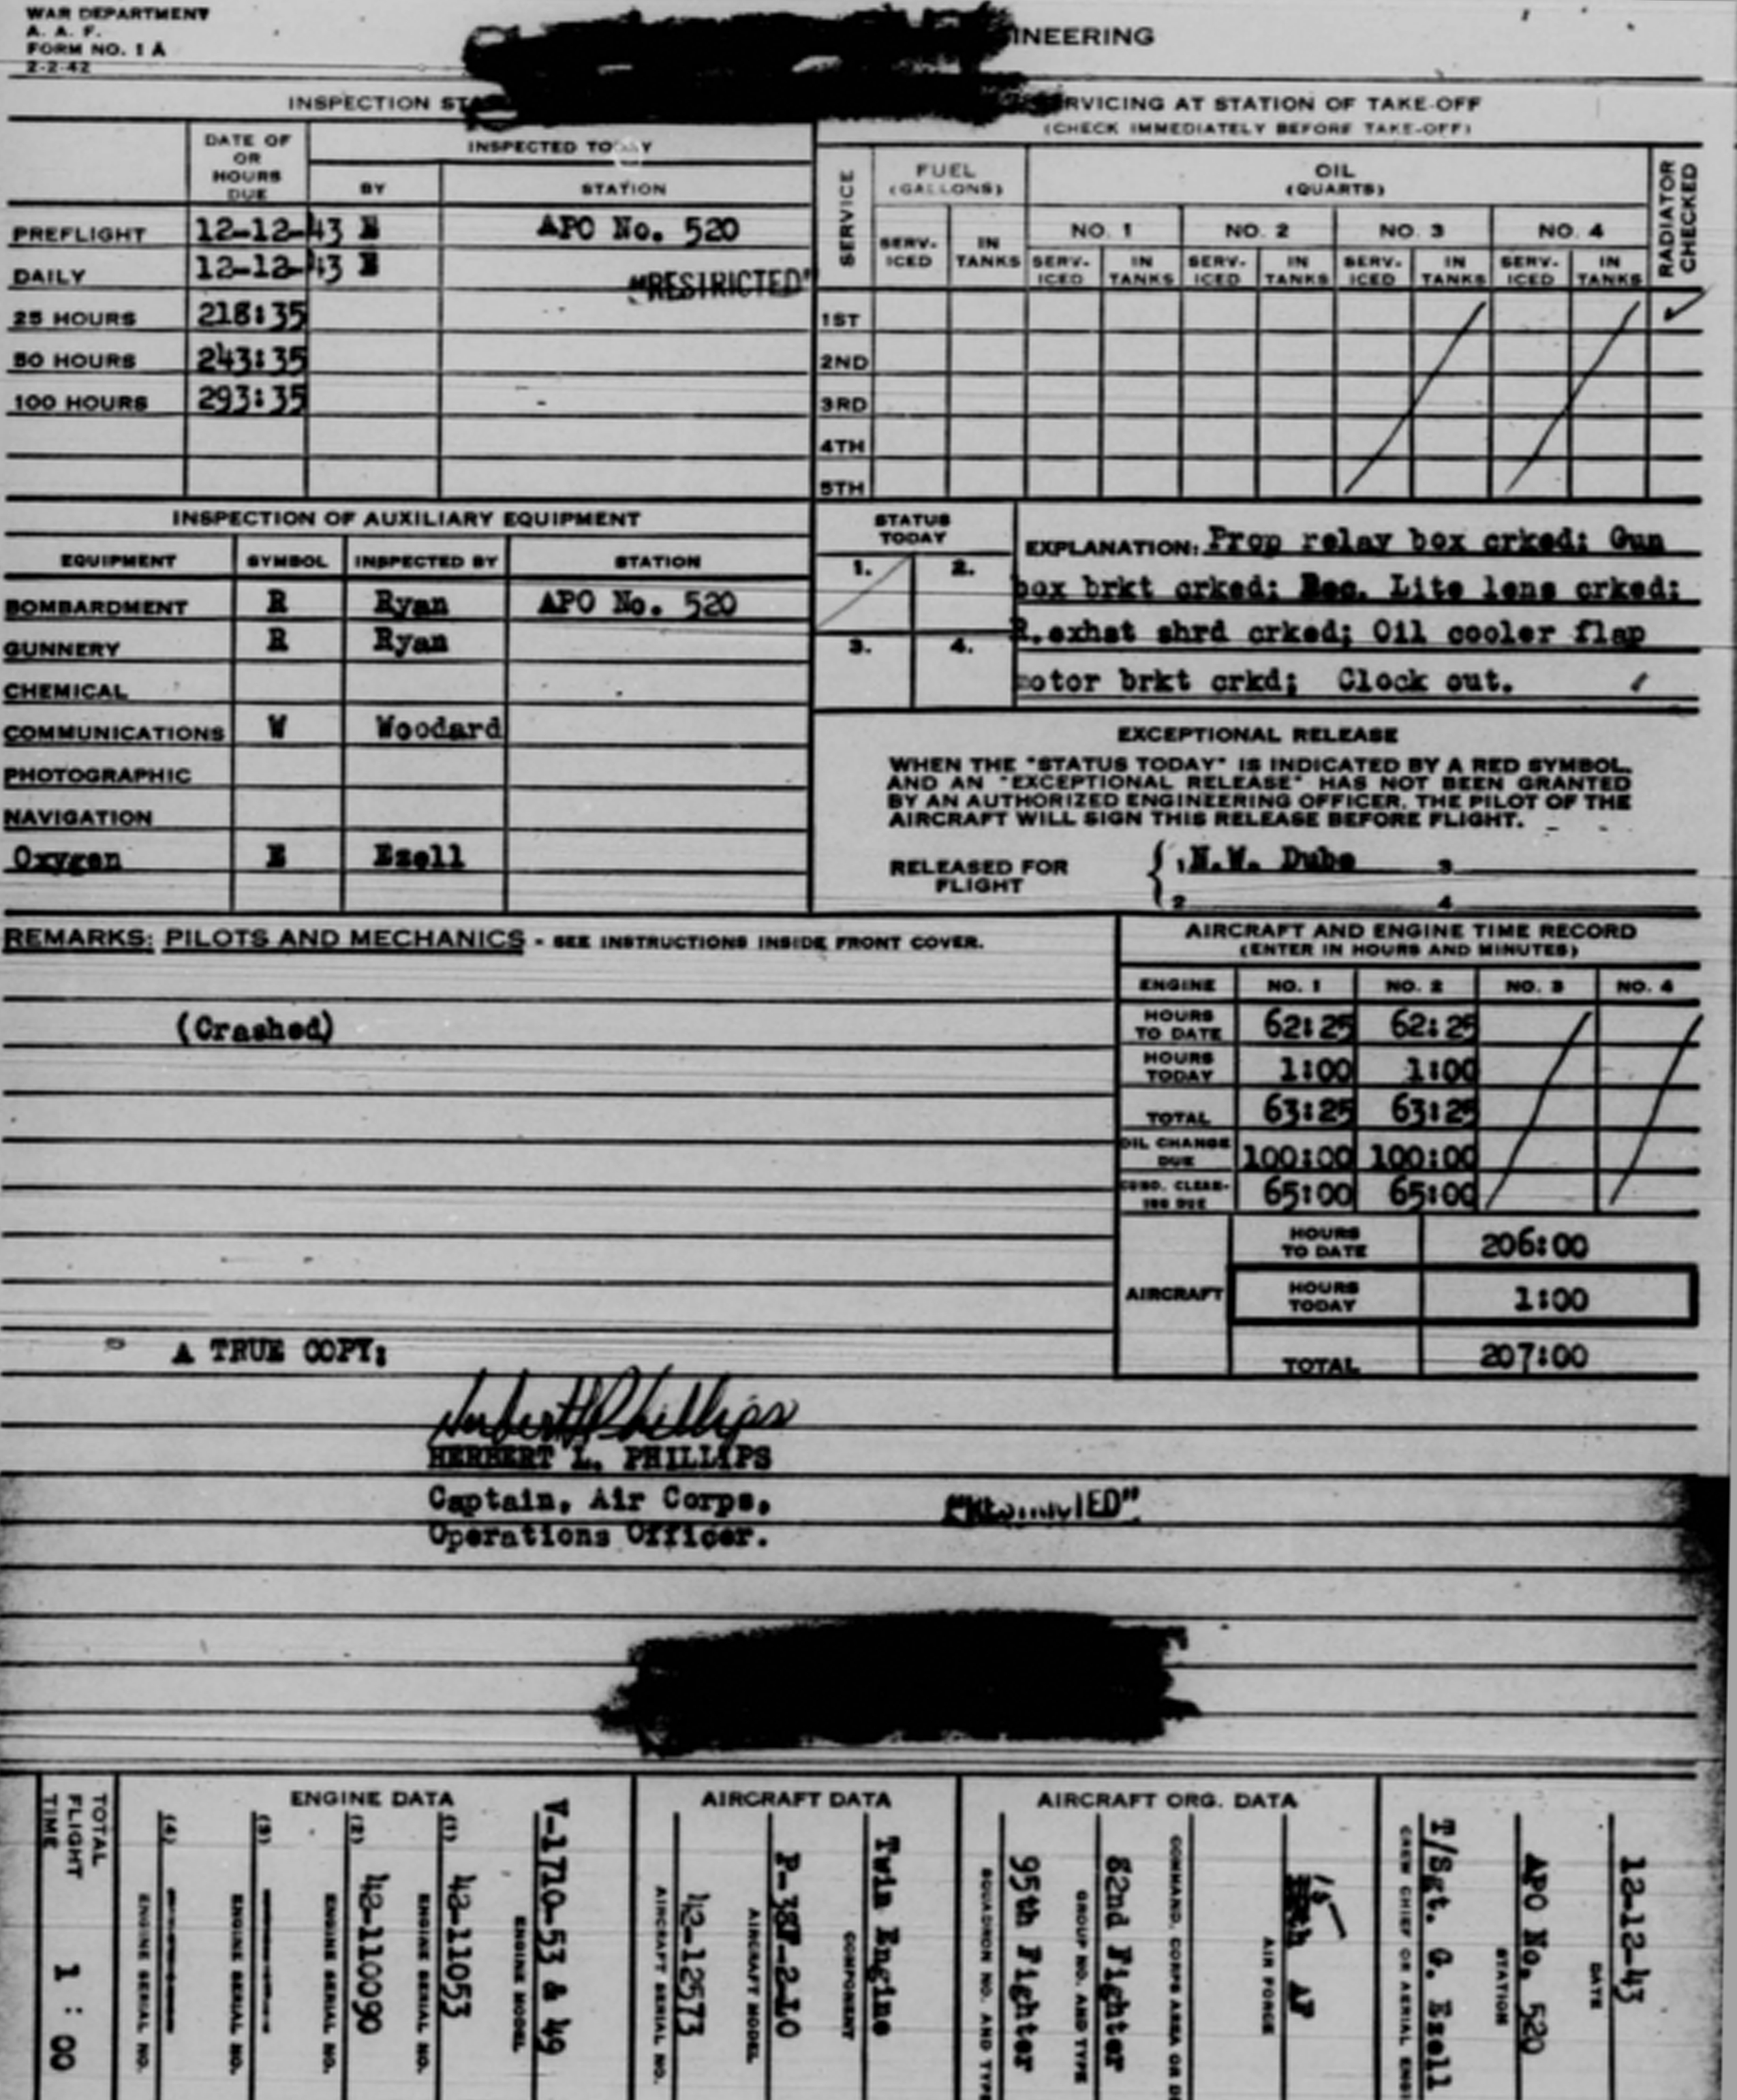 WAR DEPARTMENT
A. A. F.
FORM NO. 1 A
2-2-42
INEERING
INSPECTION STA
DATE OF OR HOURS DUE
INSPECTED TODAY
BY STATION
PREFLIGHT 12-12-43 E APO No. 520
DAILY 12-12-43 E
"RESTRICTED"
25 HOURS 218:35
50 HOURS 243:35
100 HOURS 293:35
RVICING AT STATION OF TAKE-OFF
(CHECK IMMEDIATELY BEFORE TAKE-OFF)
SERVICE
FUEL (GALLONS)
OIL (QUARTS)
RADIATOR CHECKED
NO. 1 NO. 2 NO. 3 NO. 4
SERV-ICED IN TANKS SERV-ICED IN TANKS SERV-ICED IN TANKS SERV-ICED IN TANKS SERV-ICED IN TANKS
1ST ✓
2ND
3RD
4TH
5TH
INSPECTION OF AUXILIARY EQUIPMENT
EQUIPMENT SYMBOL INSPECTED BY STATION
BOMBARDMENT R Ryan APO No. 520
GUNNERY R Ryan
CHEMICAL
COMMUNICATIONS W Woodard
PHOTOGRAPHIC
NAVIGATION
Oxygen E Ezell
STATUS TODAY
1. 2.
3. 4.
EXPLANATION: Prop relay box crked; Gun
box brkt crked; Rec. Lite lens crked;
R.exhst shrd crked; Oil cooler flap
motor brkt crkd; Clock out.
EXCEPTIONAL RELEASE
WHEN THE "STATUS TODAY" IS INDICATED BY A RED SYMBOL,
AND AN "EXCEPTIONAL RELEASE" HAS NOT BEEN GRANTED
BY AN AUTHORIZED ENGINEERING OFFICER, THE PILOT OF THE
AIRCRAFT WILL SIGN THIS RELEASE BEFORE FLIGHT.
RELEASED FOR FLIGHT
1 N.W. Dube 3
2 4
REMARKS: PILOTS AND MECHANICS - SEE INSTRUCTIONS INSIDE FRONT COVER.
(Crashed)
AIRCRAFT AND ENGINE TIME RECORD
(ENTER IN HOURS AND MINUTES)
ENGINE NO. 1 NO. 2 NO. 3 NO. 4
HOURS TO DATE 62:25 62:25
HOURS TODAY 1:00 1:00
TOTAL 63:25 63:25
OIL CHANGE DUE 100:00 100:00
CUNO. CLEAN-ING DUE 65:00 65:00
AIRCRAFT
HOURS TO DATE 206:00
HOURS TODAY 1:00
TOTAL 207:00
A TRUE COPY:
Herbert L Phillips
HERBERT L. PHILLIPS
Captain, Air Corps,
Operations Officer.
"RESTRICTED"
12-12-43
DATE
APO No. 520
STATION
T/Sgt. G. Ezell
CREW CHIEF OR AERIAL ENGI
AIRCRAFT ORG. DATA
15 AF
AIR FORCE
COMMAND, CORPS AREA OR D
82nd Fighter
GROUP NO. AND TYPE
95th Fighter
SQUADRON NO. AND TYPE
AIRCRAFT DATA
Twin Engine
COMPONENT
P-38F-2-LO
AIRCRAFT MODEL
42-12573
AIRCRAFT SERIAL NO.
ENGINE DATA
V-1710-53 & 49
ENGINE MODEL
(1) 42-11053
ENGINE SERIAL NO.
(2) 42-110090
ENGINE SERIAL NO.
(3)
ENGINE SERIAL NO.
(4)
ENGINE SERIAL NO.
TOTAL FLIGHT TIME 1 : 00